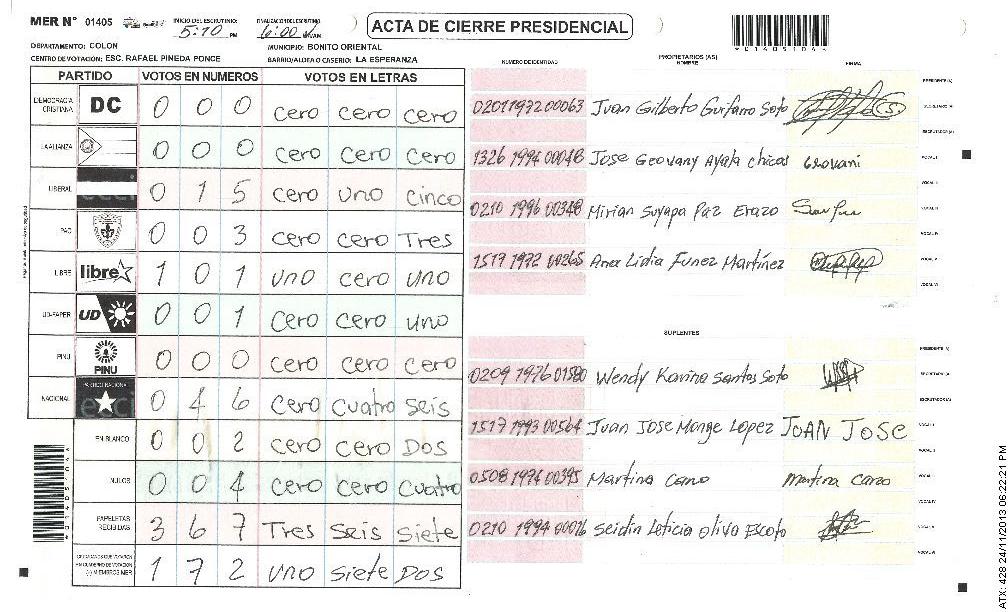 MER N° 01405
INICIO DEL ESCRUTINIO: 5:10 PM
FINALIZACION DEL ESCRUTINIO: 6:00
ACTA DE CIERRE PRESIDENCIAL
*01405104*
DEPARTAMENTO: COLON
MUNICIPIO: BONITO ORIENTAL
CENTRO DE VOTACIÓN: ESC. RAFAEL PINEDA PONCE
BARRIO/ALDEA O CASERIO: LA ESPERANZA
PARTIDO VOTOS EN NUMEROS VOTOS EN LETRAS
DEMOCRACIA CRISTIANA DC 0 0 0 cero cero cero
LA ALIANZA 0 0 0 cero cero cero
LIBERAL 0 1 5 cero uno cinco
PAC 0 0 3 cero cero Tres
LIBRE libre 1 0 1 uno cero uno
UD-FAPER UD 0 0 1 cero cero uno
PINU PINU 0 0 0 cero cero cero
NACIONAL PARTIDO NACIONAL 0 4 6 cero cuatro seis
EN BLANCO 0 0 2 cero cero DOS
NULOS 0 0 4 cero cero cuatro
PAPELETAS RECIBIDAS 3 6 7 Tres seis siete
CIUDADANOS QUE VOTARON EN CUADERNO DE VOTACION (-) MIEMBROS MER 1 7 2 uno siete DOS
NUMERO DE IDENTIDAD
PROPIETARIOS (AS)
NOMBRE
FIRMA
PRESIDENTE (A)
0201 1972 00063 Juan Gilberto Guifarro Soto
SECRETARIO (A)
ESCRUTADOR (A)
1326 1994 00048 Jose Geovany Ayala chicas Geovani
VOCAL I
VOCAL II
0210 1996 00348 Mirian Suyapa Paz Erazo
VOCAL III
VOCAL IV
1517 1972 00265 Ana Lidia Funez Martínez
VOCAL V
VOCAL VI
SUPLENTES
PRESIDENTE (A)
0209 1976 01580 Wendy Karina Santos Soto
SECRETARIO (A)
ESCRUTADOR (A)
1517 1993 00564 Juan Jose Monge Lopez JOAN JOSE
VOCAL I
VOCAL II
0508 1974 00395 Martina Cano martina Cano
VOCAL IV
0210 1994 00016 Seidin Leticia Oliva Escoto
VOCAL V
VOCAL VI
*01405104*
ATX: 428 24/11/2013 06:22:21 PM